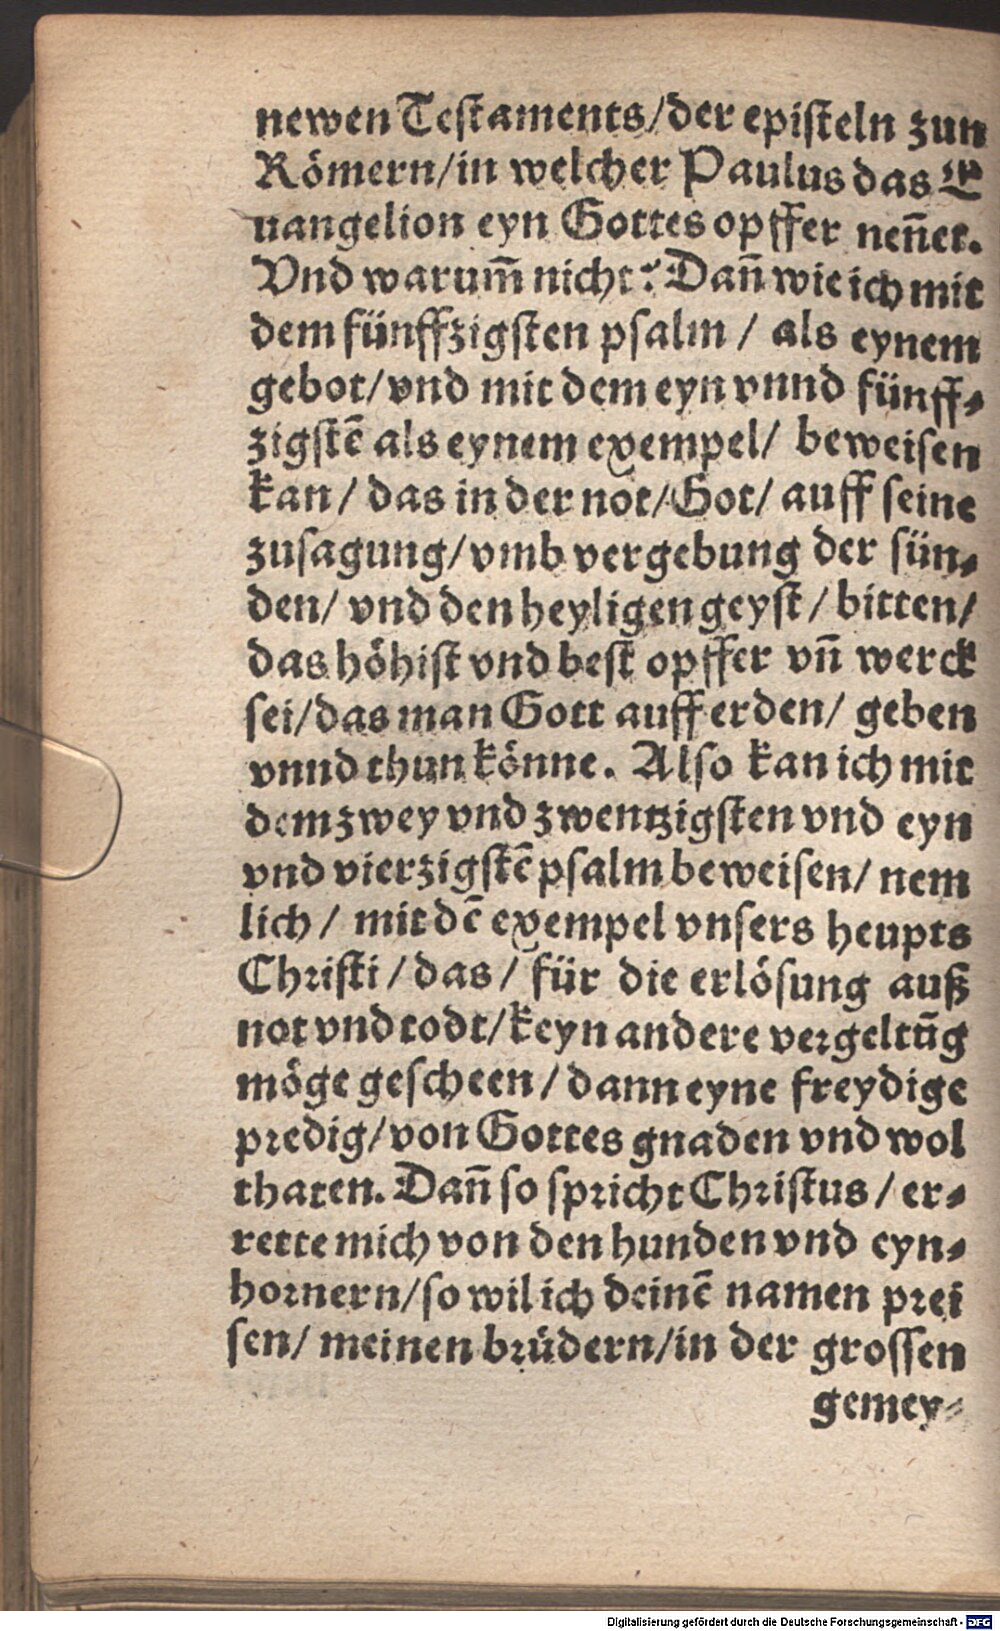 newen Teſtaments/der epiſteln zun
Römern/in welcher Paulus das E
uangelion eyn Gottes opffer nen̄et.
Vnd warum̄ nicht? Dan̄ wie ich mit
dem fünffzigſten pſalm / als eynem
gebot/vnd mit dem eyn vnnd fünff⸗
zigſtē als eynem exempel/ beweiſen
kan / das in der not/Got/ auff ſeine
zuſagung/vmb vergebung der ſün⸗
den/ vnd den heyligen geyſt / bitten/
das höhiſt vnd beſt opffer vn̄ werck
ſei/das man Gott auff erden/ geben
vnnd thun könne. Alſo kan ich mit
dem zwey vnd zwentzigſten vnd eyn
vnd vierzigſtē pſalm beweiſen/ nem
lich / mit dē exempel vnſers heupts
Chriſti / das / für die erlöſung auß
not vnd todt/keyn andere vergeltūg
möge geſcheen / dann eyne freydige
predig/von Gottes gnaden vnd wol
thaten. Dan̄ ſo ſpricht Chriſtus / er⸗
rette mich von den hunden vnd eyn⸗
hornern/ſo wil ich deinē namen prei
ſen/ meinen brüdern/in der groſſen
gemey⸗
Digitalisierung gefördert durch die Deutsche Forschungsgemeinschaft - DFG